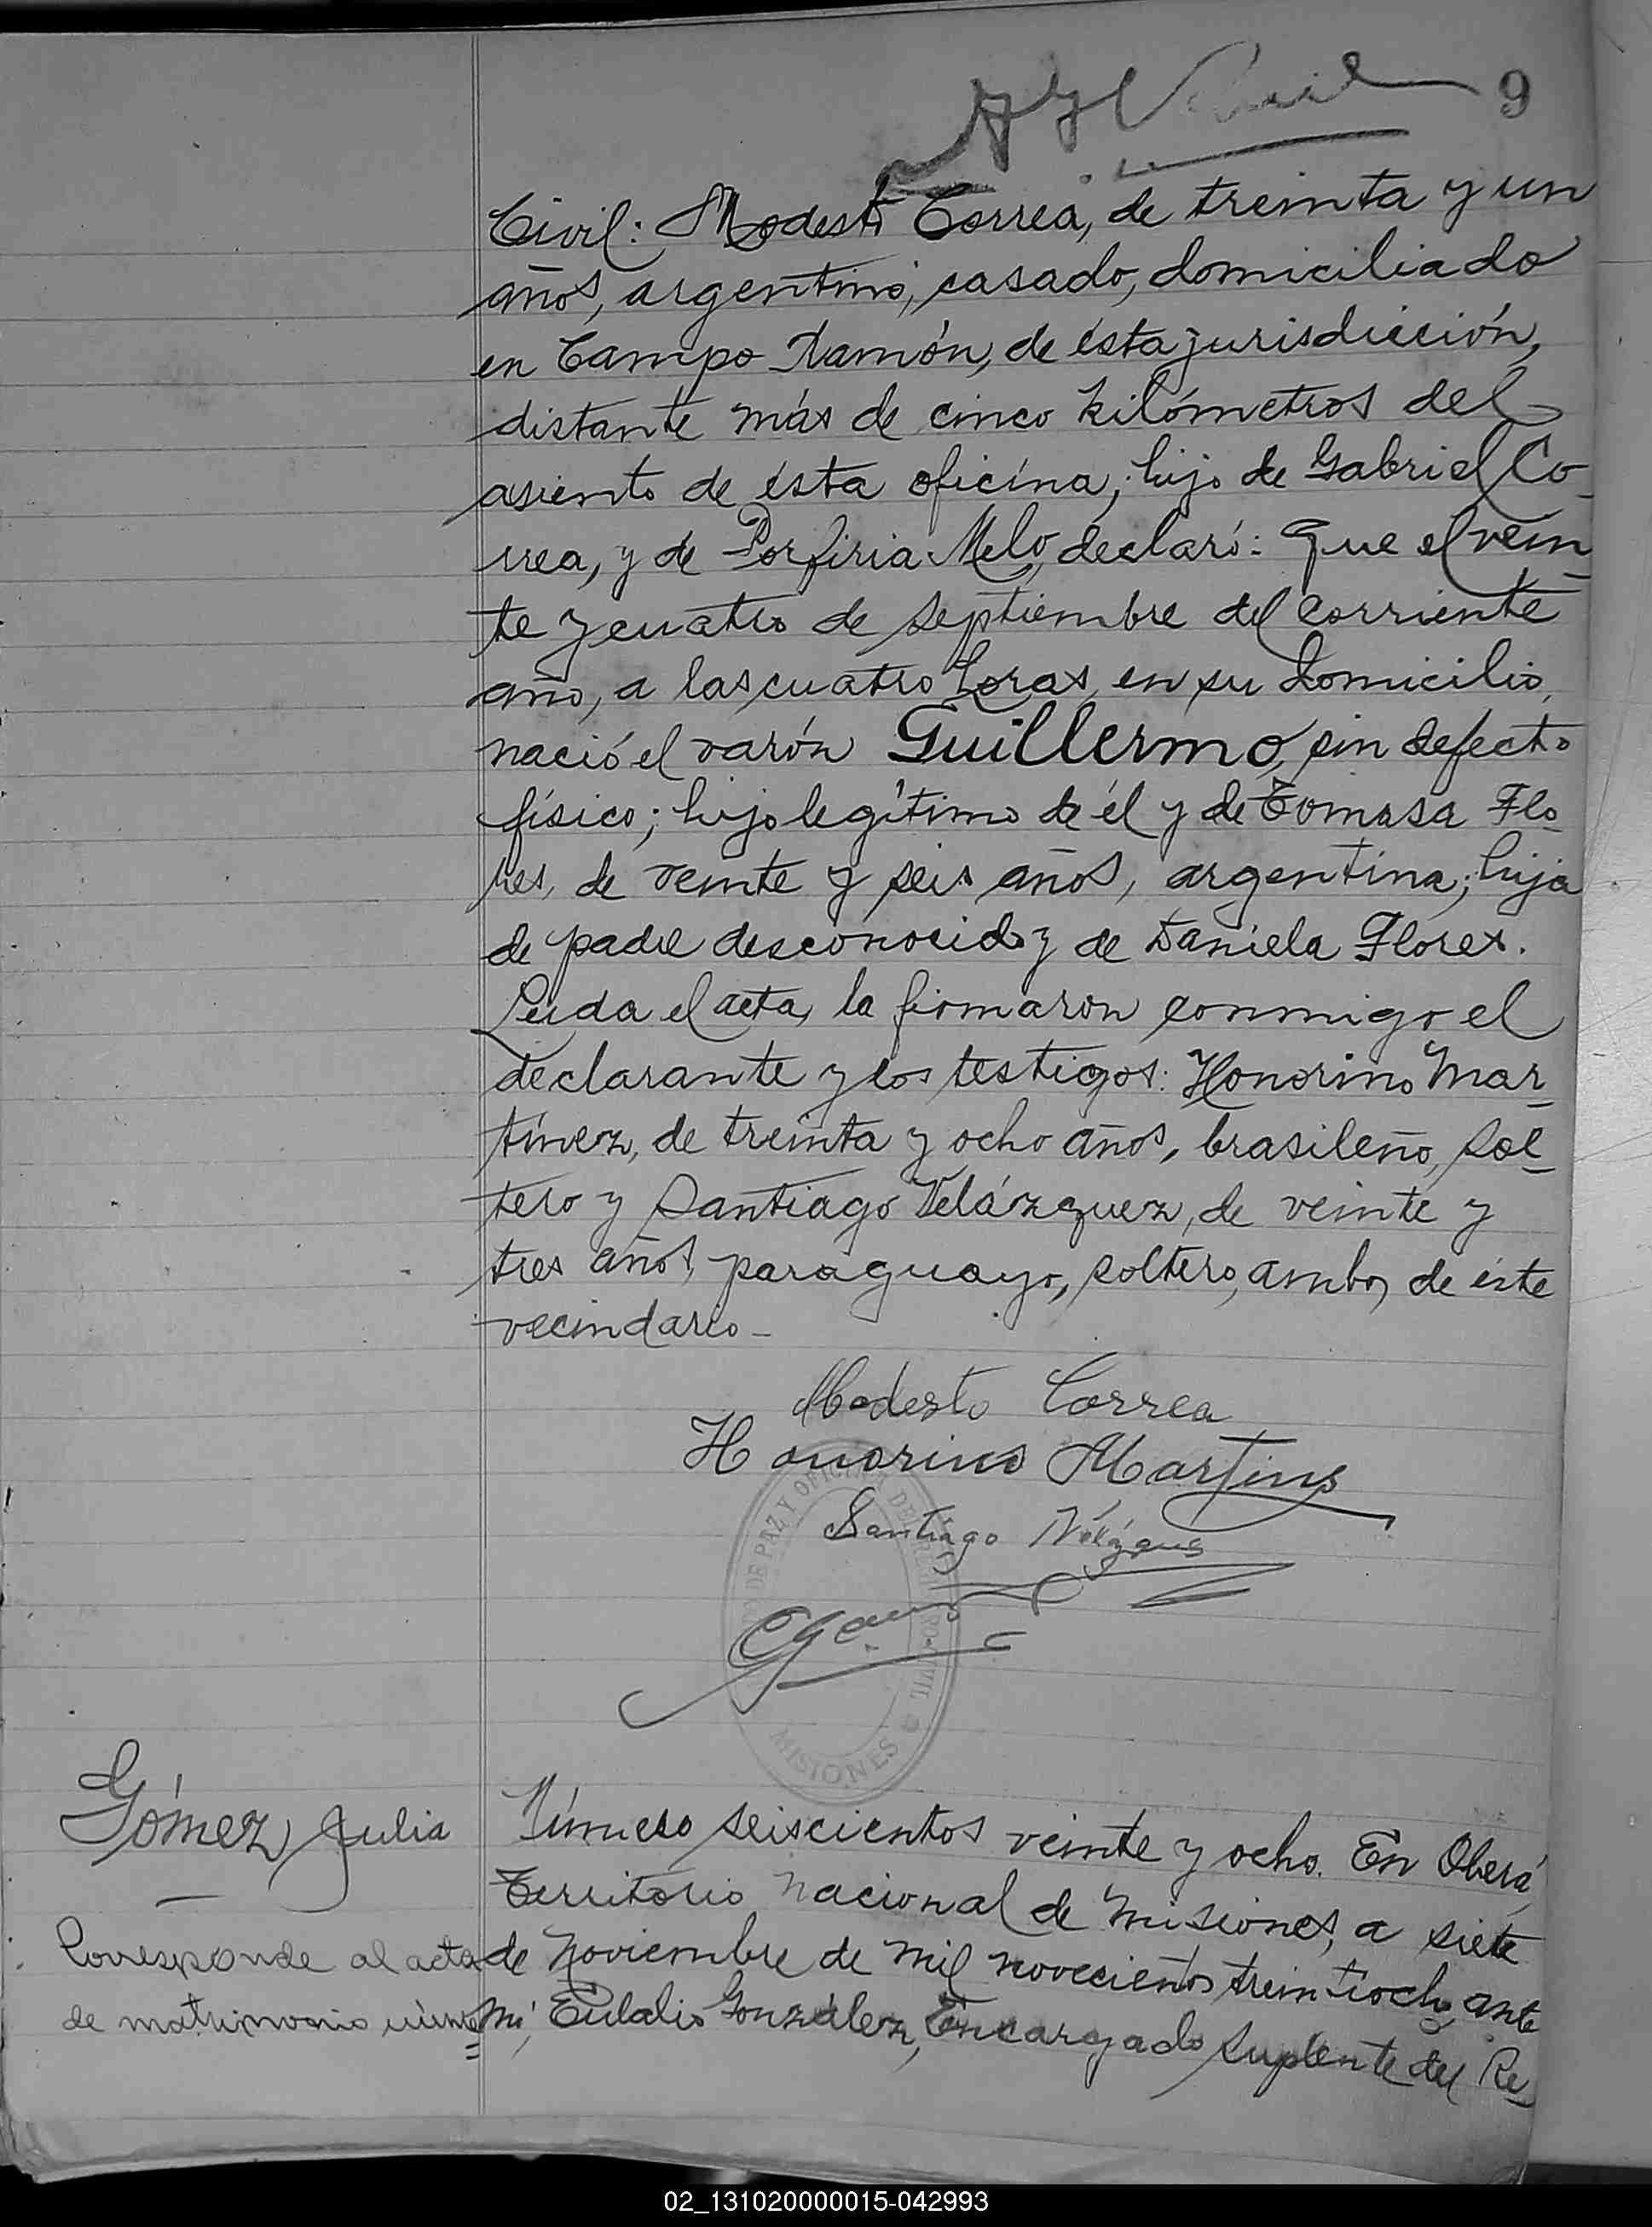 9
Civil: Modesto Correa, de treinta y un
años, argentino, casado, domiciliado
en Campo Ramón, de ésta jurisdicción,
distante más de cinco kilómetros del
asiento de ésta oficina, hijo de Gabriel Co-
rrea, y de Porfiria Melo, declaró: Que el vein-
te y cuatro de septiembre del corriente
año, a las cuatro horas, en su domicilio,
nació el varón Guillermo, sin defecto
físico; hijo legítimo de él y de Tomasa Flo-
res, de veinte y seis años, argentina; hija
de padre desconocido y de Daniela Flores.
Leida el acta, la firmaron conmigo el
declarante y los testigos: Honorino Mar-
tínez, de treinta y ocho años, brasileño, sol-
tero y Santiago Velázquez, de veinte y
tres años, paraguayo, soltero, ambos de éste
vecindario-
Modesto Correa
Honorino Martins
Santiago
DE PAZ Y OFICINA DEL CIVIL
MISIONES
Gómez, Julia
Corresponde al acta
de matrimonio núme=
Número seiscientos veinte y ocho. En Oberá,
Territorio Nacional de Misiones, a siete
de Noviembre de mil novecientos treintiocho, ante
mí, Eulalio González, Encargado Suplente del Re-
02_131020000015-042993